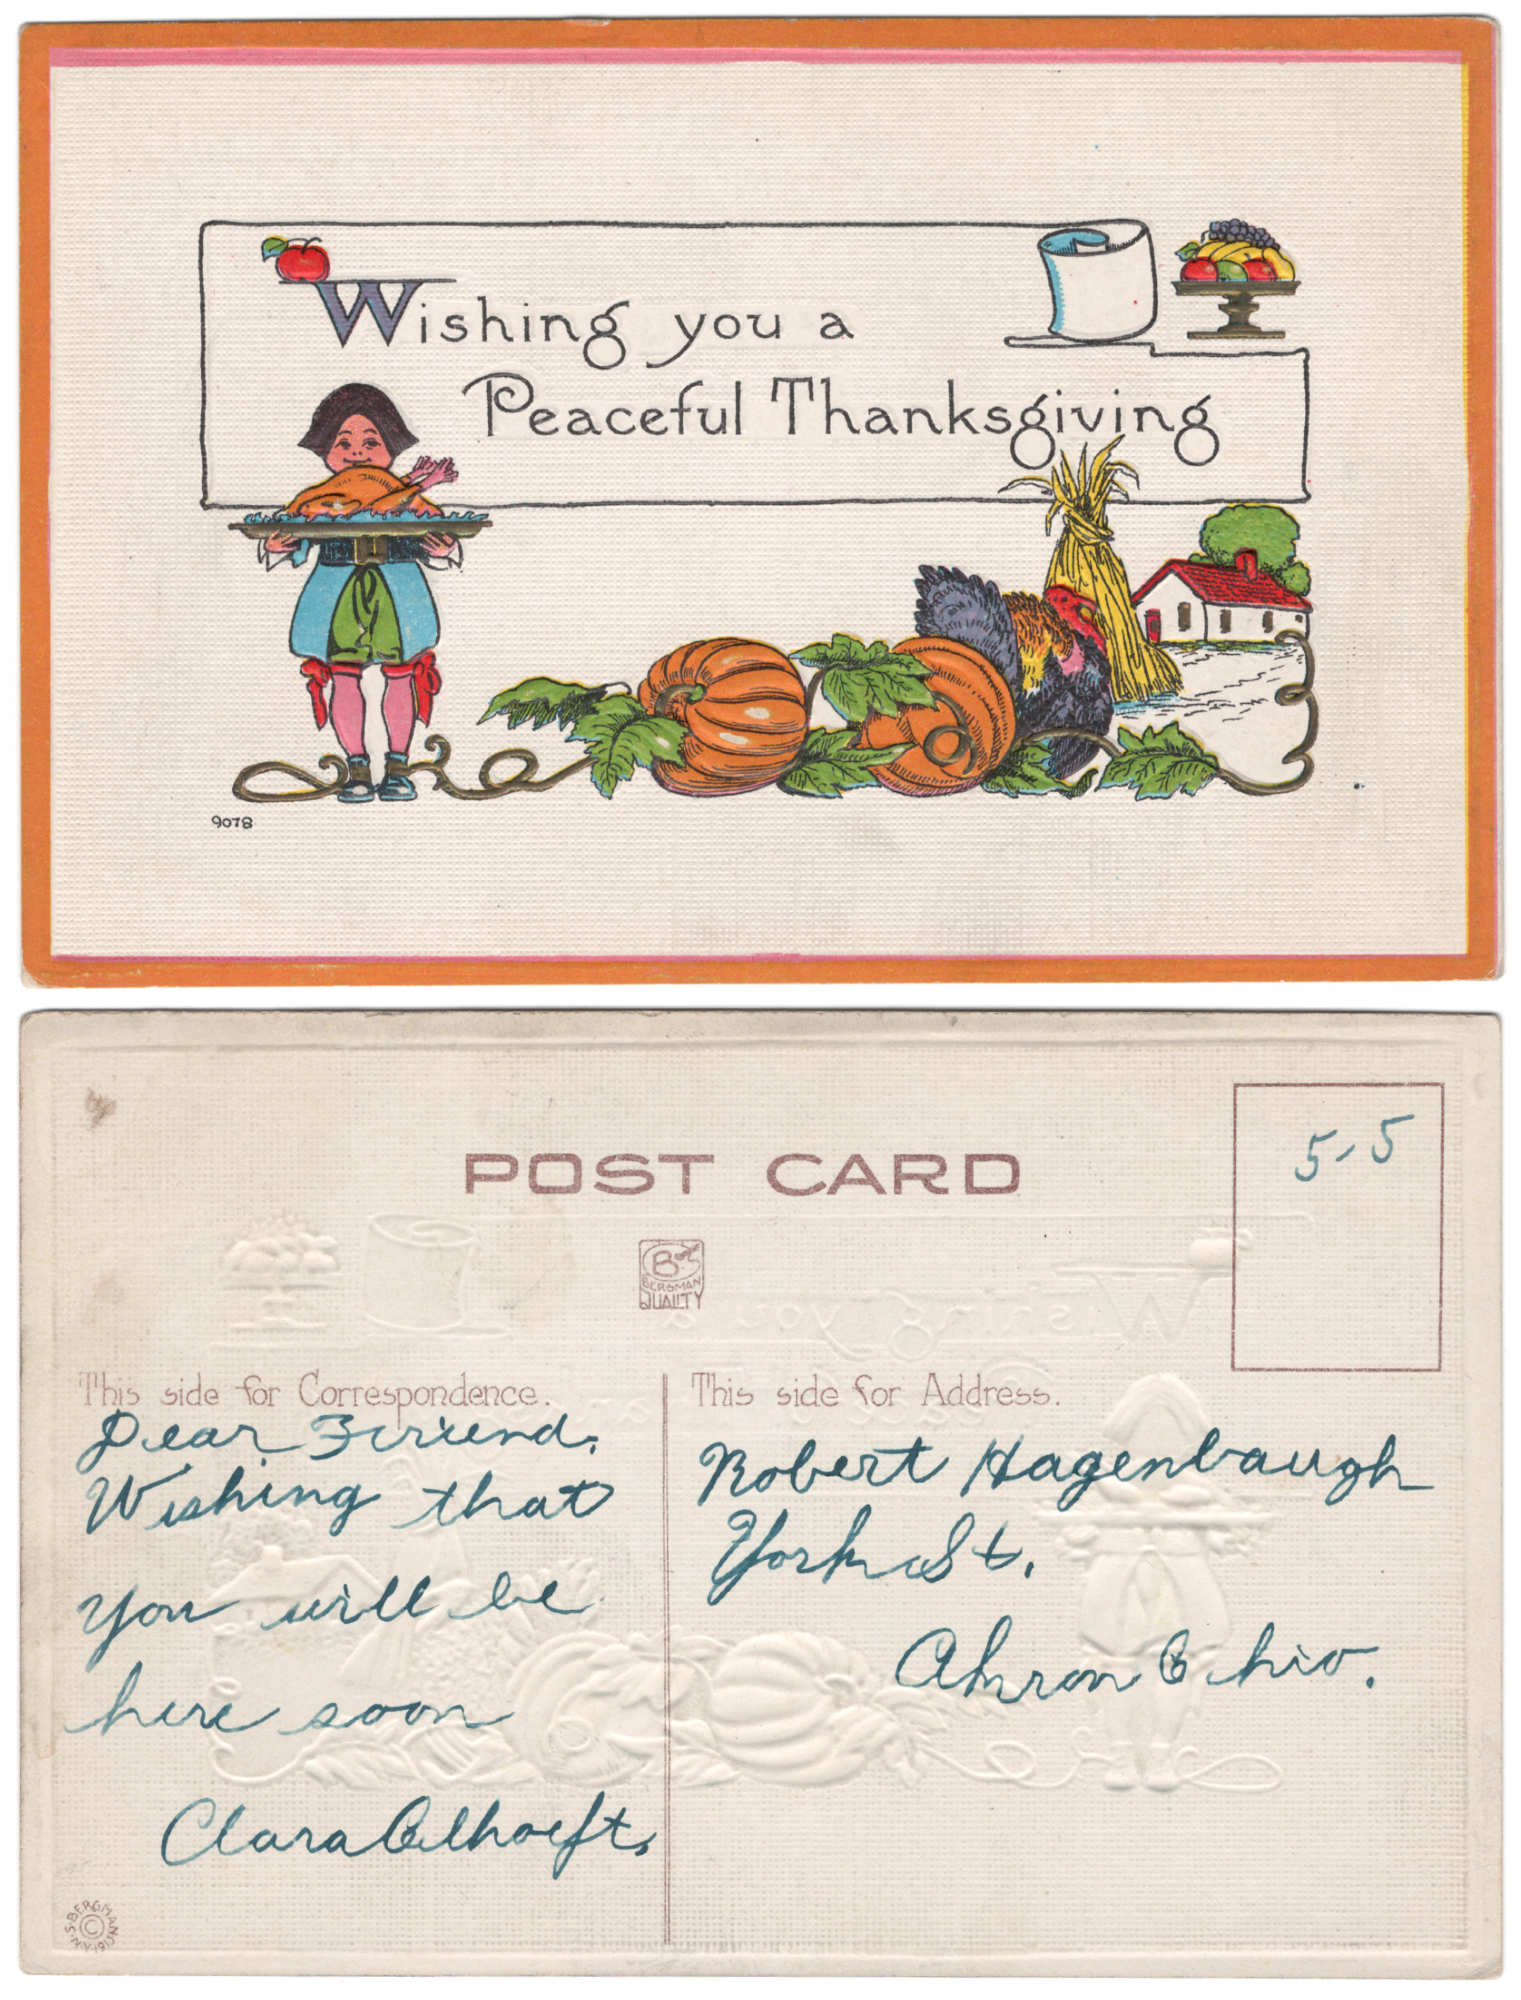 Wishing you a
Peaceful Thanksgiving
9078
POST CARD
5-5
B
BERGMAN
QUALITY
This side for Correspondence.
This side for Address.
Dear Friend.
Wishing that
you will be
here soon
Clara
Robert Hagenbaugh
York St.
Akron Ohio.
© S. BERGMAN N.Y.